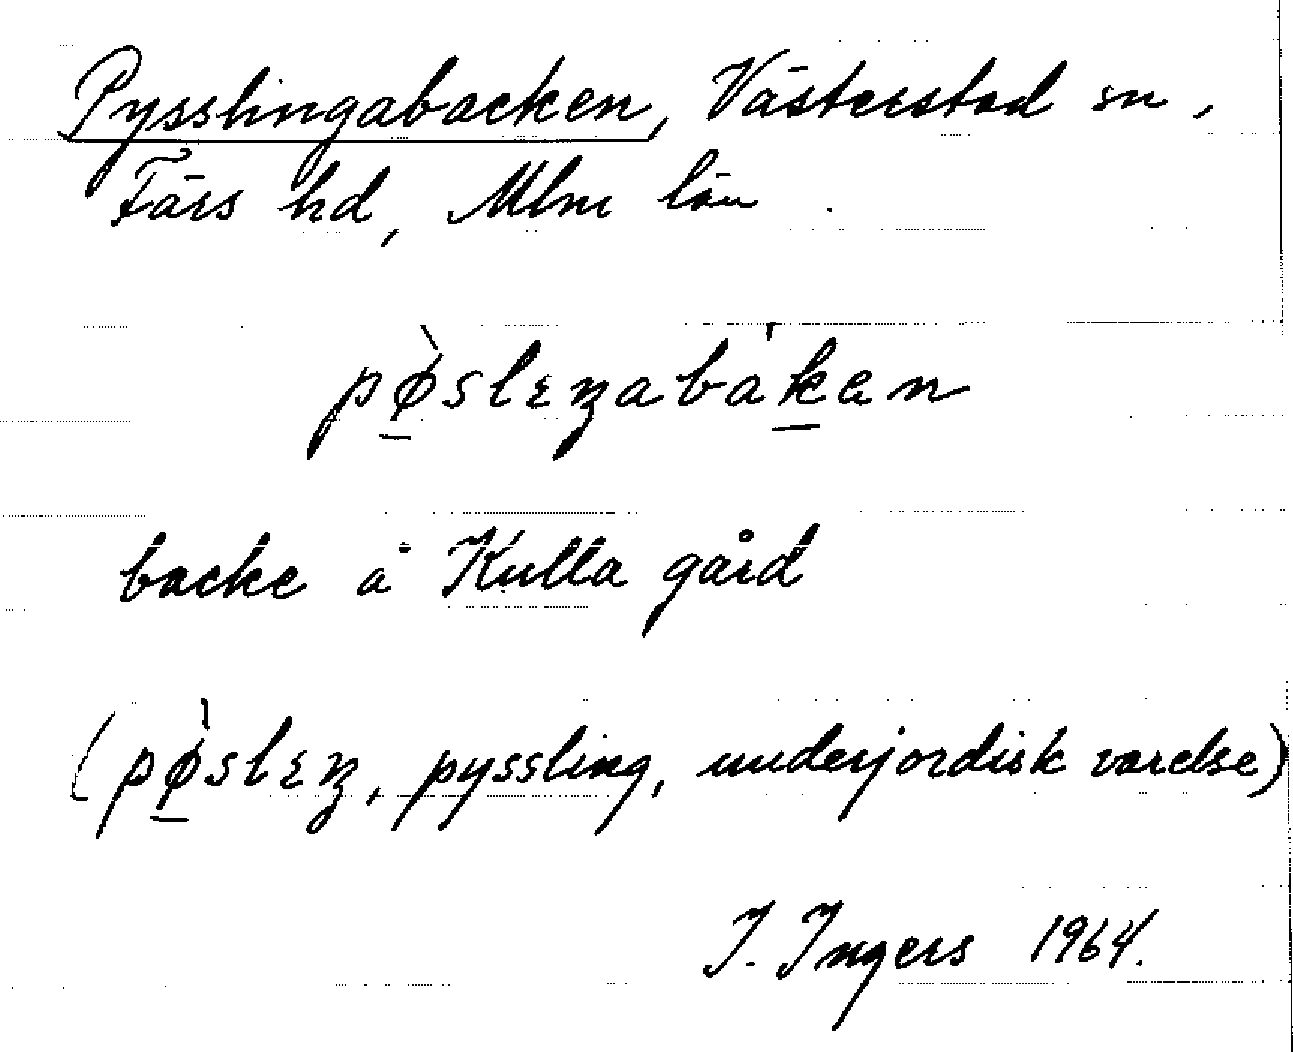 Pysslingabacken, Västerstad sn,
Färs hd, Mlm län.
pø̀slɛŋabàkan
backe å Kulla gård
(pø̀slɛŋ, pyssling, underjordisk varelse)
I. Ingers 1964.